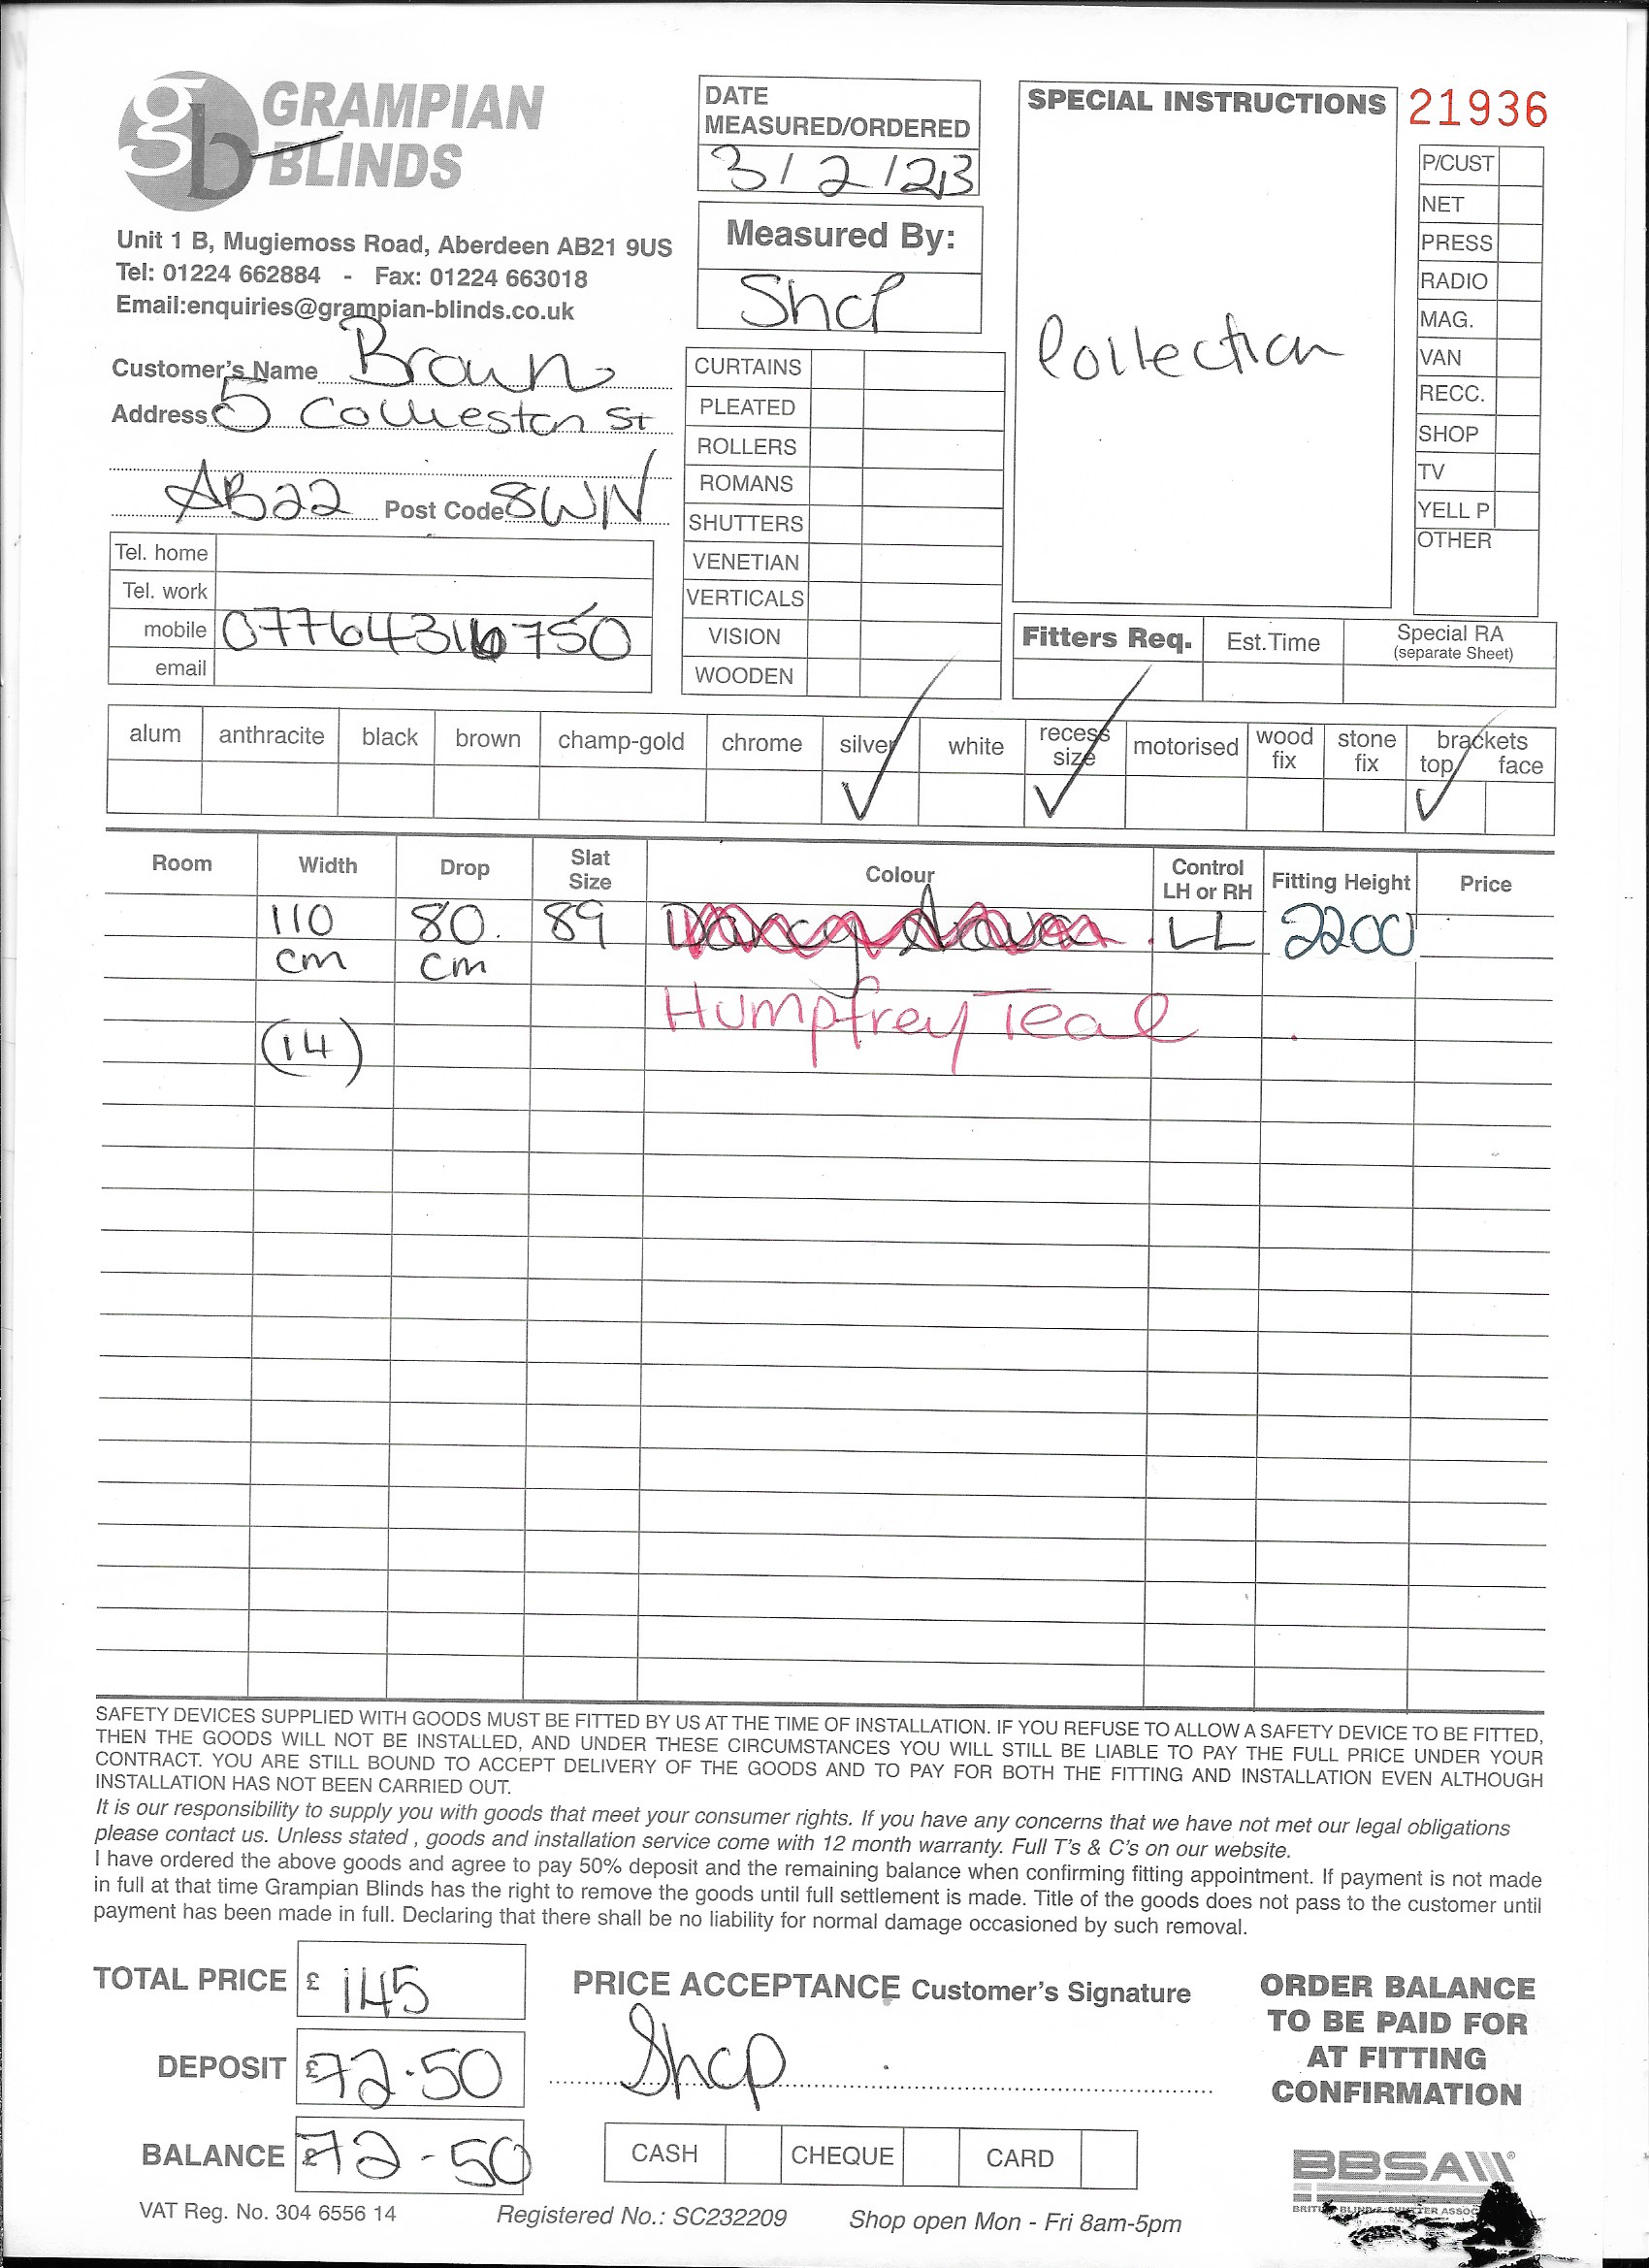 gb GRAMPIAN BLINDS
Unit 1 B, Mugiemoss Road, Aberdeen AB21 9US
Tel: 01224 662884 - Fax: 01224 663018
Email:enquiries@grampian-blinds.co.uk
Customer's Name Brown
Address 5 Collieston St
AB22 Post Code 8WN
Tel. home
Tel. work
mobile
email
DATE
MEASURED/ORDERED
3/2/23
Measured By:
Shop
CURTAINS
PLEATED
ROLLERS
ROMANS
SHUTTERS
VENETIAN
VERTICALS
VISION
WOODEN
SPECIAL INSTRUCTIONS
Collection
21936
P/CUST
NET
PRESS
RADIO
MAG.
VAN
RECC.
SHOP
TV
YELL P
OTHER
Fitters Req. Est.Time Special RA
(separate Sheet)
alum anthracite black brown champ-gold chrome silver white recess size motorised wood fix stone fix brackets top face
Room Width Drop Slat Size Colour Control LH or RH Fitting Height Price
110 80. 89 LL 2200
cm cm
Humpfrey Teal
(14)
SAFETY DEVICES SUPPLIED WITH GOODS MUST BE FITTED BY US AT THE TIME OF INSTALLATION. IF YOU REFUSE TO ALLOW A SAFETY DEVICE TO BE FITTED,
THEN THE GOODS WILL NOT BE INSTALLED, AND UNDER THESE CIRCUMSTANCES YOU WILL STILL BE LIABLE TO PAY THE FULL PRICE UNDER YOUR
CONTRACT. YOU ARE STILL BOUND TO ACCEPT DELIVERY OF THE GOODS AND TO PAY FOR BOTH THE FITTING AND INSTALLATION EVEN ALTHOUGH
INSTALLATION HAS NOT BEEN CARRIED OUT.
It is our responsibility to supply you with goods that meet your consumer rights. If you have any concerns that we have not met our legal obligations
please contact us. Unless stated , goods and installation service come with 12 month warranty. Full T's & C's on our website.
I have ordered the above goods and agree to pay 50% deposit and the remaining balance when confirming fitting appointment. If payment is not made
in full at that time Grampian Blinds has the right to remove the goods until full settlement is made. Title of the goods does not pass to the customer until
payment has been made in full. Declaring that there shall be no liability for normal damage occasioned by such removal.
TOTAL PRICE £ 145
DEPOSIT £ 72.50
BALANCE £ 72-50
PRICE ACCEPTANCE Customer's Signature
Shop
CASH CHEQUE CARD
ORDER BALANCE
TO BE PAID FOR
AT FITTING
CONFIRMATION
BBSA
VAT Reg. No. 304 6556 14 Registered No.: SC232209 Shop open Mon - Fri 8am-5pm